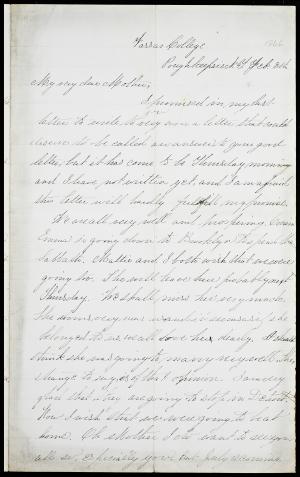 Vassar College
Poughkeepsie N.Y. Feb. 8th
1866
My very dear Mother;
I promised in my last
letter to write to you soon a letter that could
deserve to be called an answer to your good
letter, but it has come to be Thursday morning
and I have not written yet, and I am afraid
this letter will hardly fulfill my promise.
We are all very well and prospering. Cousin
Emma is going down to Brooklyn to spend the
Sabbath. Mattie and I both wish that we were
going too. She will leave here probably next
Thursday. We shall miss her very much.
She seems very near to us because she
belonged to us, we all love her dearly. I should
think she was going to marry very well
change to say of that opinion. I am very
glad that they are going to stop in Detroit
How I wish that we were going to be at
home. Oh Mother I do want to see you
all so, especially your own